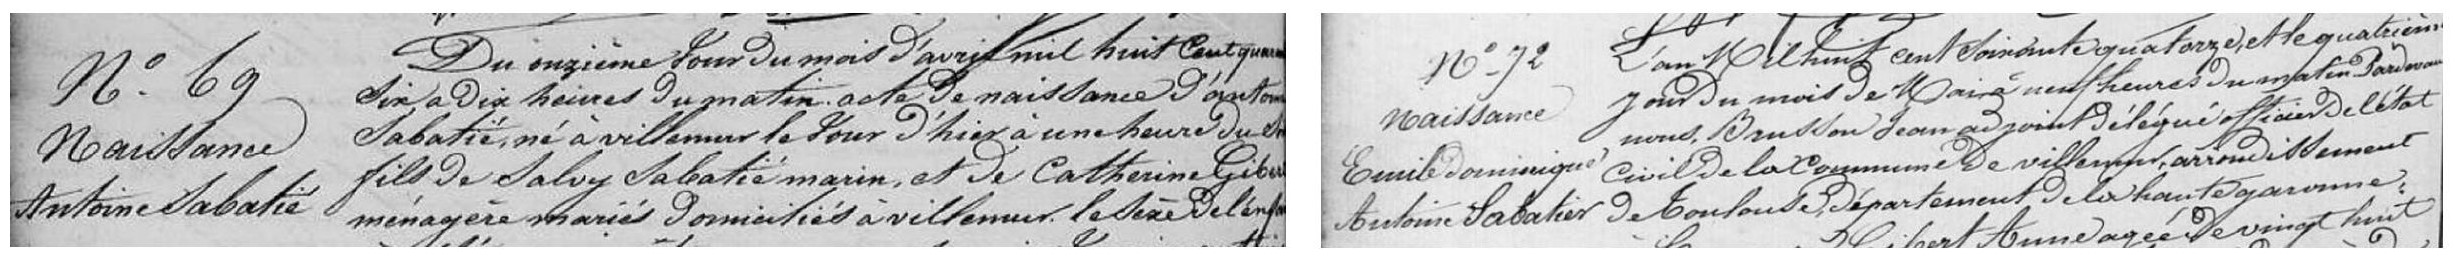 N° 69
Naissance
Antoine Sabatié
Du onzième Jour du mois d'avril mil huit Cent quaran
Six a Dix heures du matin. acte de naissance d'antoin
Sabatié, né à villemur le Jour d'hier à une heure du
fils de Salvy Sabatié marin, et de Catherine Gibert
ménagère mariés Domiciliés à villemur. le sexe De l'enfan
N° 72
Naissance
Emile dominique
Antoine Sabatier
L'an Mil huit cent Soixante quatorze, et le quatrième
jour du mois de Mai à neuf heures du matin Pardevan
nous, Brusson Jean adjoint délégué officier De l'état
Civil De la Commune De villemur, arrondissement
De Toulouse, Département De la haute garonne.
Gibert Anne agée De vingt huit